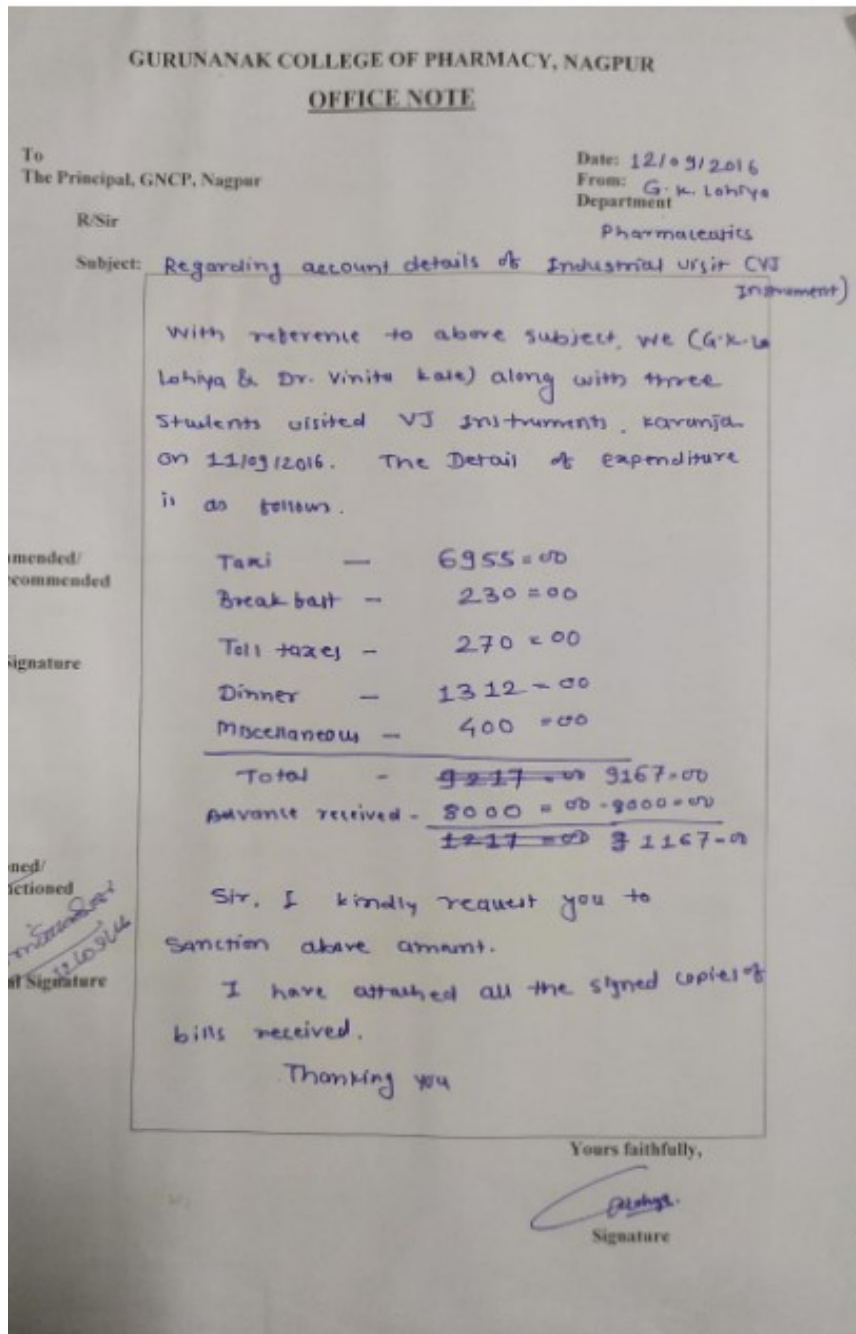 GURUNANAK COLLEGE OF PHARMACY, NAGPUR
OFFICE NOTE
To
The Principal, GNCP, Nagpur
Date: 12/09/2016
From: G. K. Lohiya
Department
Pharmaceutics
R/Sir
Subject: Regarding account details of Industrial visit (VJ
Instrument)
With reference to above subject, we (G.K. Lo
Lohiya & Dr. Vinita Kale) along with three
Students visited VJ Instruments, Karanja
on 11/09/2016. The Detail of expenditure
is as follows.
mended/
commended
Taxi — 6955=00
Breakfast – 230=00
Signature
Toll taxes – 270=00
Dinner — 1312=00
Miscellaneous — 400=00
Total - 9217=00 9167=00
Advance received - 8000=00 -8000=00
1217=00 1167=00
ned/
ctioned
Sir, I kindly request you to
Sanction above amount.
al Signature
I have attached all the signed copies of
bills received.
Thanking you
Yours faithfully,
Signature